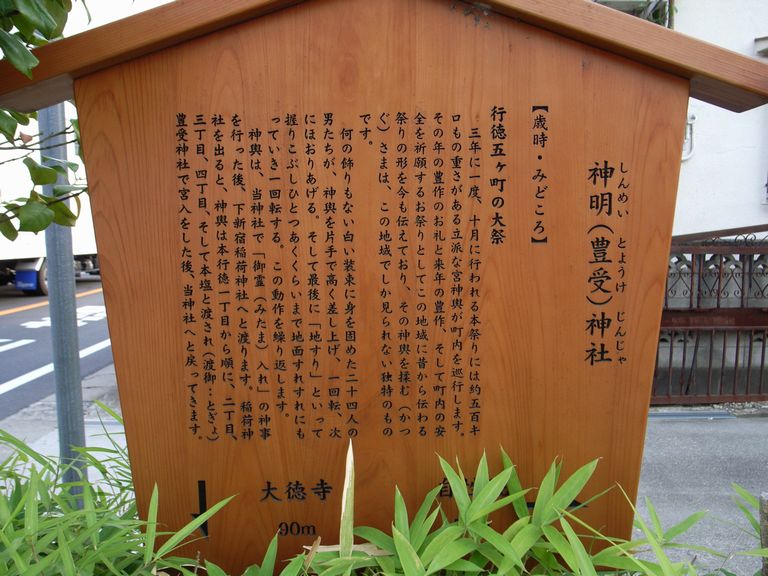 しんめい とようけ じんじゃ
神明(豊受)神社
【歳時・みどころ】
行徳五ヶ町の大祭
三年に一度、十月に行われる本祭りには約五百キ
ロもの重さがある立派な宮神輿が町内を巡行します。
その年の豊作のお礼と来年の豊作、そして町内の安
全を祈願するお祭りとしてこの地域に昔から伝わる
祭りの形を今も伝えており、その神輿を揉む(かつ
ぐ)さまは、この地域でしか見られない独特のもの
です。
何の飾りもない白い装束に身を固めた二十四人の
男たちが、神輿を片手で高く差し上げ、一回転、次
にほおりあげる。そして最後に「地すり」といって
握りこぶしひとつあくくらいまで地面すれすれにも
っていき一回転する。この動作を繰り返します。
神輿は、当神社で「御霊(みたま)入れ」の神事
を行った後、下新宿稲荷神社へと渡ります。稲荷神
社を出ると、神輿は本行徳一丁目から順に、二丁目、
三丁目、四丁目、そして本塩と渡され(渡御・とぎょ)
豊受神社で宮入をした後、当神社へと戻ってきます。
大徳寺
90m